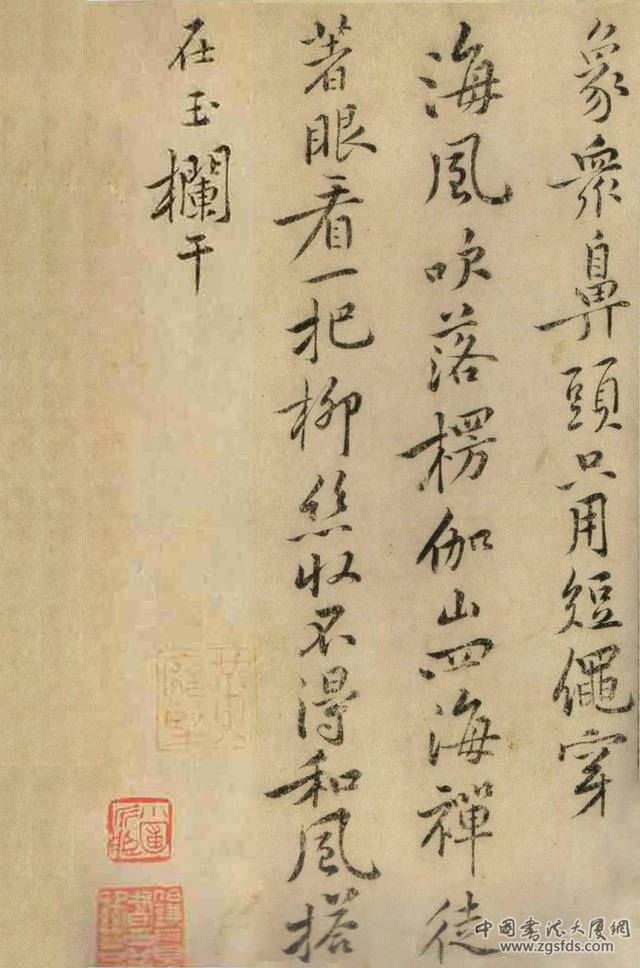 象眾鼻頭只用短繩穿
海風吹落楞伽山四海禪徒
著眼看一把柳絲收不得和風搭
在玉欄干
中国书法大厦网
www.zgsfds.com